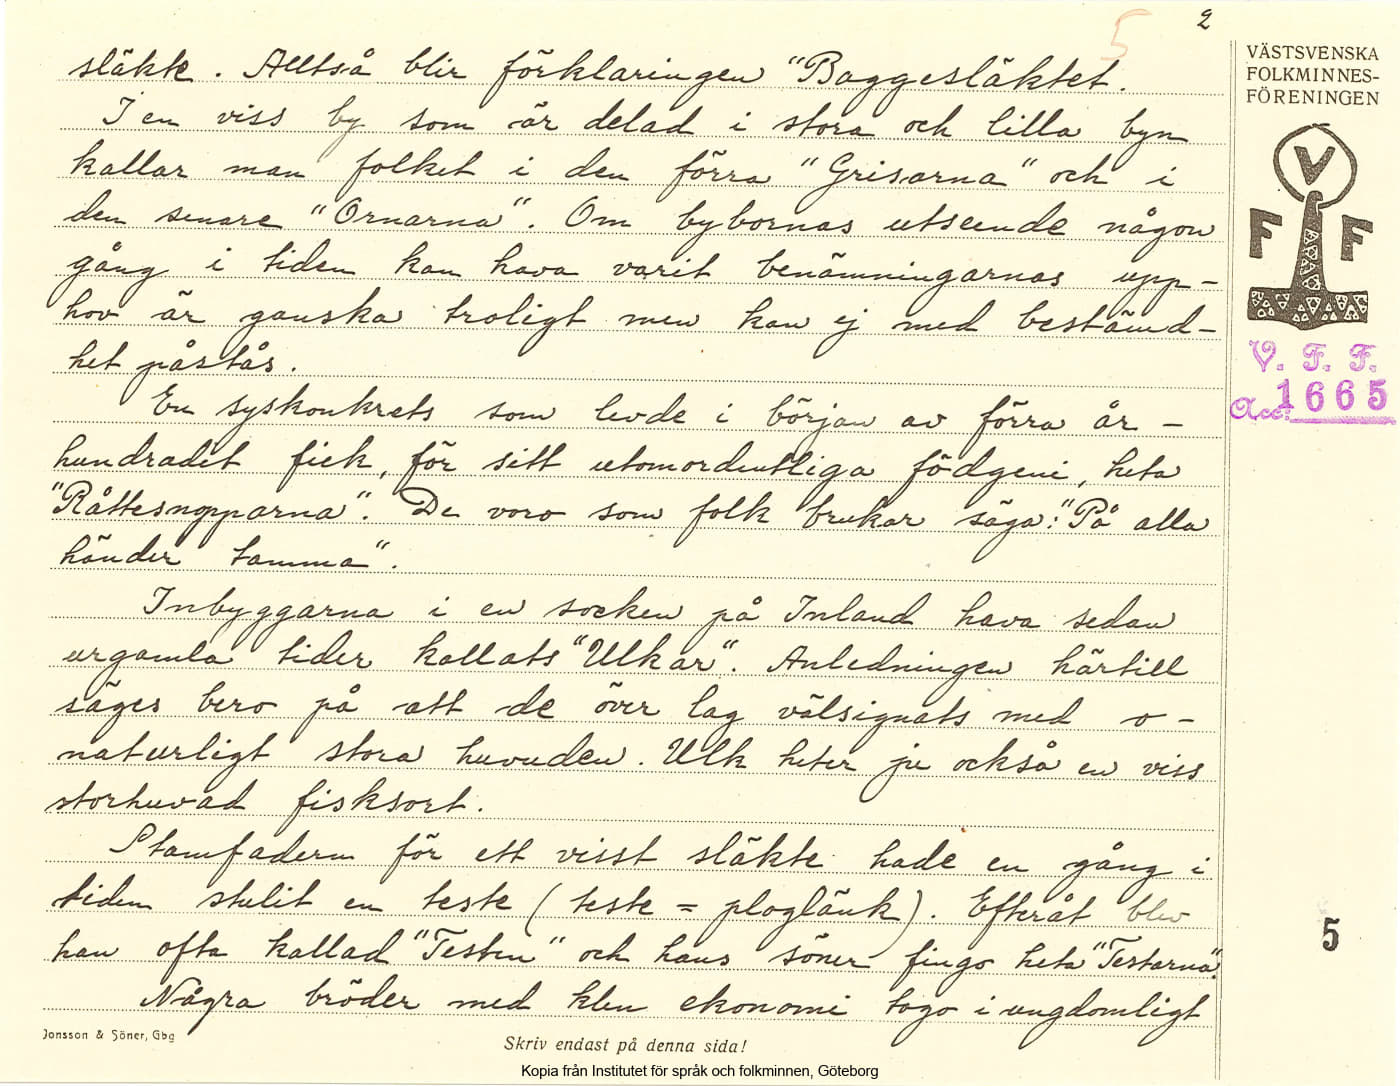 5
2
släkte. Alltså blir förklaringen "Baggesläktet.
I en viss by som är delad i stora och lilla byn
kallar man folket i den förra "Grisarna" och i
den senare "Ornarna". Om bybornas utseende någon
gång i tiden kan hava varit benämningarnas upp-
hov är ganska troligt men kan ej med bestämd-
het påstås.
En syskonkrets som levde i början av förra år-
hundradet fick, för sitt utomordentliga födgeni, heta
"Råttesnopparna". De voro som folk brukar säga: "På alla
händer tamma".
Inbyggarna i en socken på Inland hava sedan
urgamla tider kallats "Ulkar". Anledningen härtill
säges bero på att de över lag välsignats med o-
naturligt stora huvuden. Ulk heter ju också en viss
storhuvad fisksort.
Stamfadern för ett visst släkte hade en gång i
tiden stulit en teste (teste = ploglänk). Efteråt blev
han ofta kallad "Testen" och hans söner fingo heta "Testarna".
Några bröder med klen ekonomi togo i ungdomligt
VÄSTSVENSKA
FOLKMINNES-
FÖRENINGEN
V
F F
V. F. F.
Acc. 1665
5
Jonsson & Söner, Gbg
Skriv endast på denna sida!
Kopia från Institutet för språk och folkminnen, Göteborg